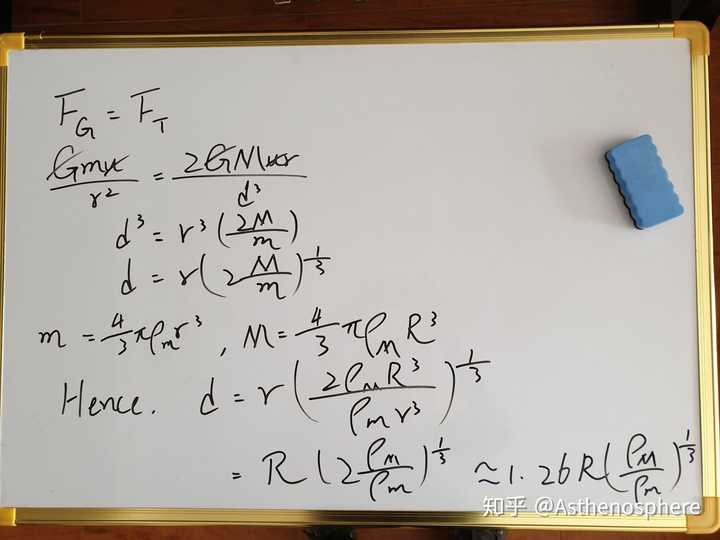 F_G = F_T
Gmu/r² = 2GMur/d³
d³ = r³(2M/m)
d = r(2M/m)^(1/3)
m = 4/3 πρ_m r³ , M = 4/3 πρ_M R³
Hence. d = r(2ρ_M R³/ρ_m r³)^(1/3)
= R(2ρ_M/ρ_m)^(1/3) ≈ 1.26R(ρ_M/ρ_m)^(1/3)
知乎 @Asthenosphere